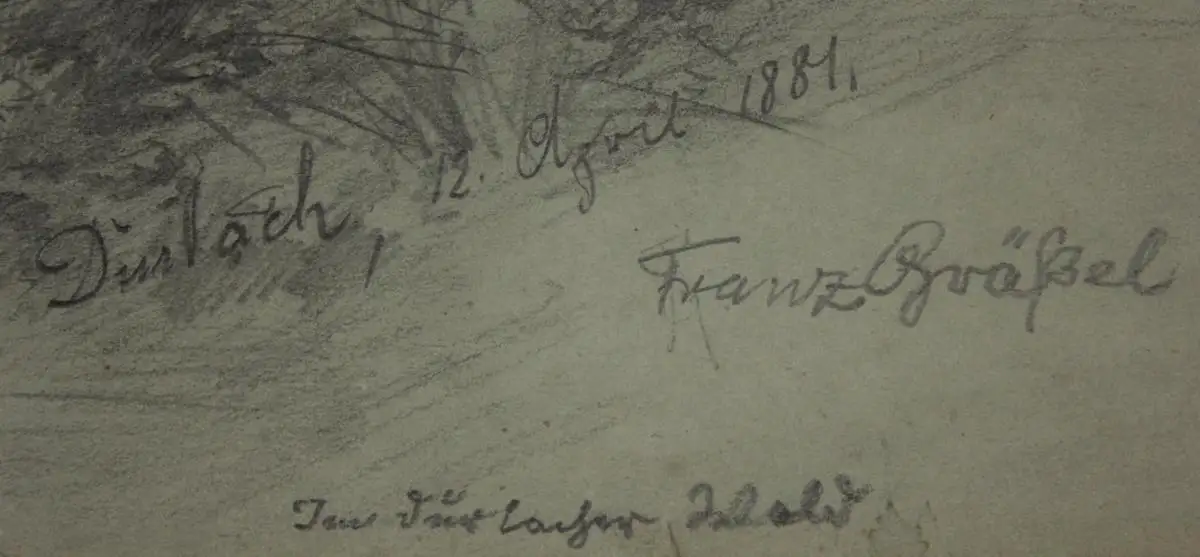 Durlach, 12. April 1881.
Franz Gräßel
Im Durlacher Wald